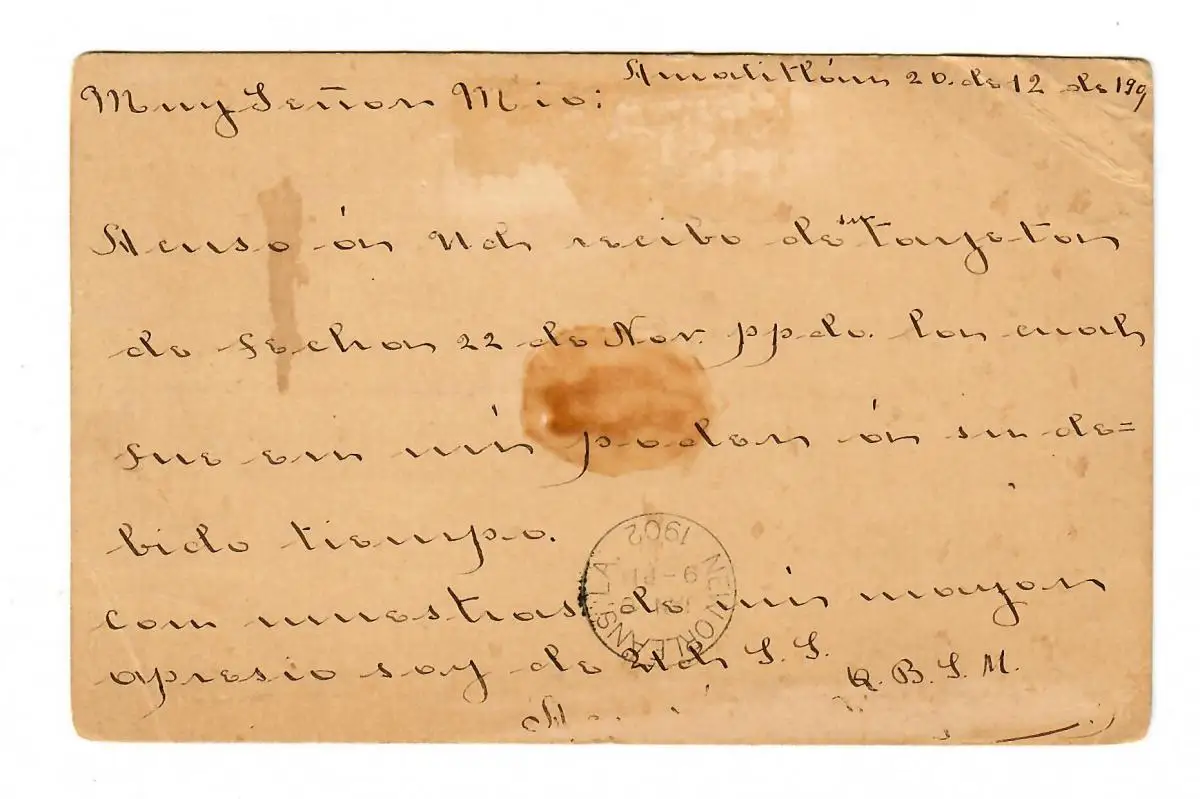 Amatitlán 20. de 12 de 190
Muy Señor Mio:
Acuso á Ud. recibo de su tarjeta
de fecha 22 de Nov. ppdo. la cual
fue en mi poder á su de=
bido tiempo.
con muestras de mi mayor
apresio soy de Ud. S.S.
Q. B. S. M.
NEW ORLEANS, LA.
9-P
1902